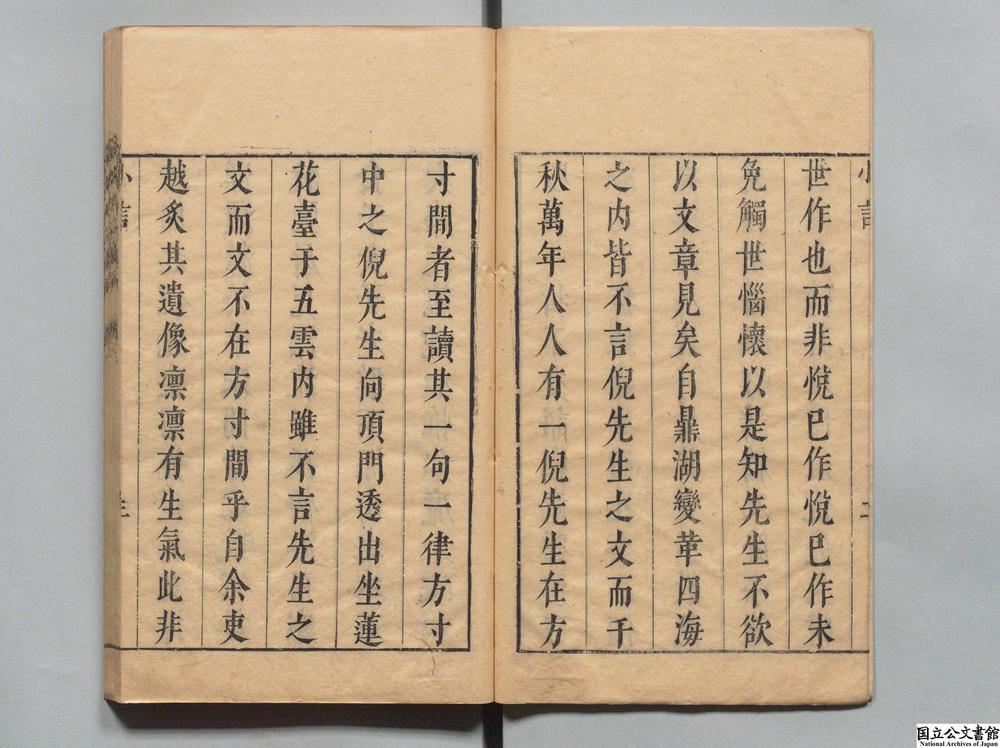 世作也而非悅巳作悅巳作未
免觸世惱懷以是知先生不欲
以文章見矣自鼎湖變革四海
之内皆不言倪先生之文而千
秋萬年人人有一倪先生在方
寸間者至讀其一句一律方寸
中之倪先生向頂門透出坐蓮
花臺于五雲内雖不言先生之
文而文不在方寸間乎自余吏
越炙其遺像凛凛有生氣此非
国立公文書館
National Archives of Japan